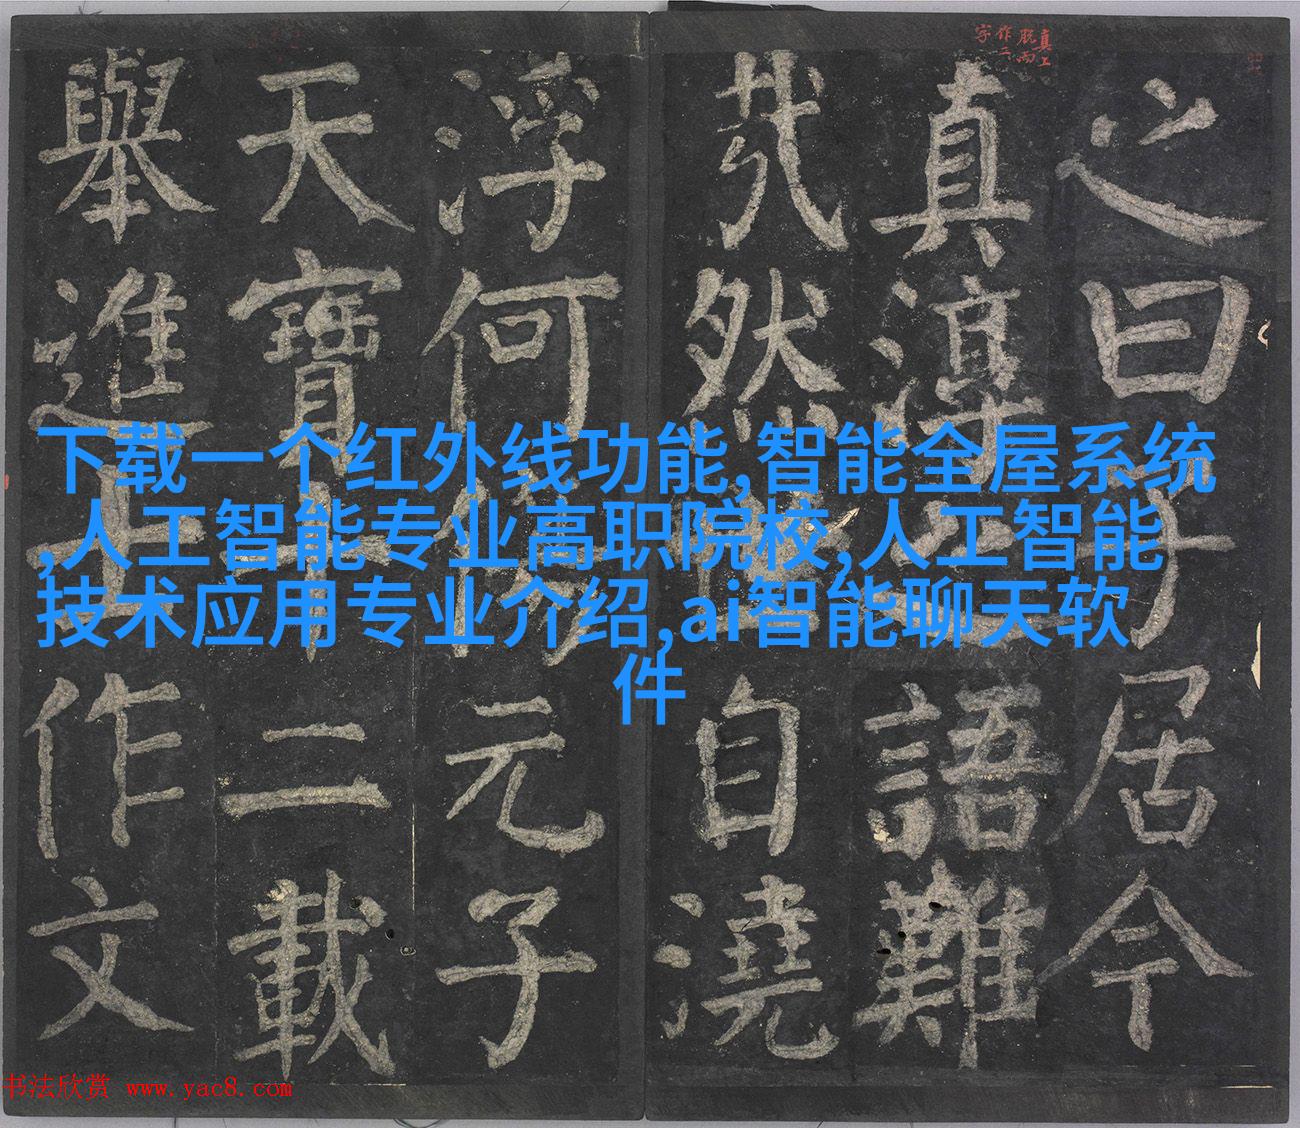 真上
脫而
作二
字
之曰子居今
真淳之語難
哉然世自澆
浮何傷元子
天寶十二載
舉進士作文
下载一个红外线功能,智能全屋系统
,人工智能专业高职院校,人工智能
技术应用专业介绍,ai智能聊天软
件
书法欣赏 www.yac8.com